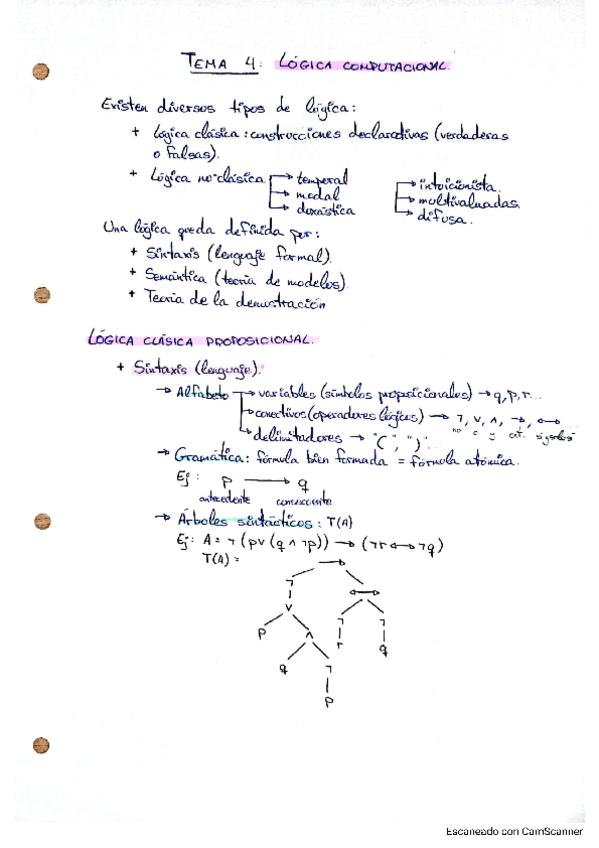 TEMA 4: LÓGICA COMPUTACIONAL.
Existen diversos tipos de lógica:
+ Lógica clásica: construcciones declarativas (verdaderas
o falsas).
+ Lógica no clásica → temporal
→ modal
→ doxástica
→ intuicionista.
→ multivaluadas.
→ difusa.
Una lógica queda definida por:
+ Sintaxis (lenguaje formal).
+ Semántica (teoría de modelos).
+ Teoría de la demostración
LÓGICA CLÁSICA PROPOSICIONAL.
+ Sintaxis (lenguaje):
→ Alfabeto → variables (símbolos proposicionales) → q, p, r...
→ conectivos (operadores lógicos) → ¬, ∨, ∧, →, ↔
no o y
→ delimitadores → "(", ")"
→ Gramática: fórmula bien formada = fórmula atómica.
Ej: p → q
antecedente consecuente
→ Árboles sintácticos: T(A)
Ej: A = ¬(p∨(q∧¬p)) → (¬r↔¬q)
T(A) =
→
¬ ↔
∨ ¬ ¬
p ∧ r q
q ¬
p
Escaneado con CamScanner